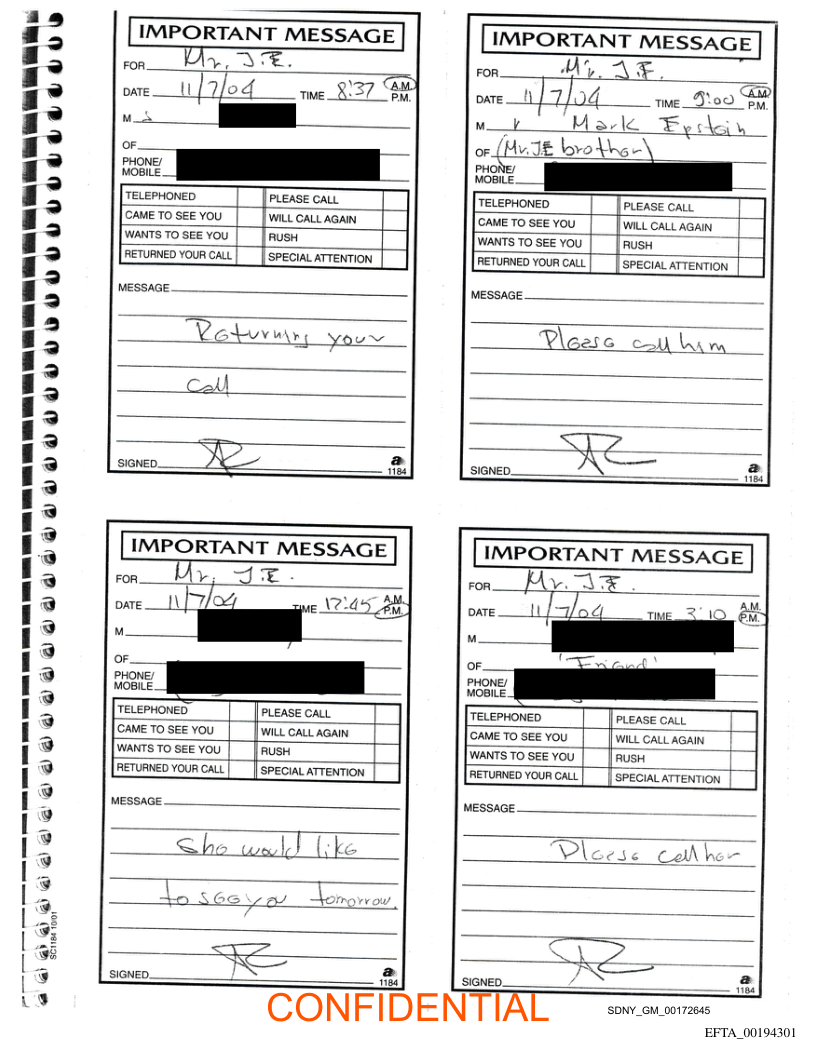 IMPORTANT MESSAGE
FOR Mr. J.E.
DATE 11/7/04 TIME 8:37 A.M.
P.M.
M s
OF
PHONE/
MOBILE
TELEPHONED PLEASE CALL
CAME TO SEE YOU WILL CALL AGAIN
WANTS TO SEE YOU RUSH
RETURNED YOUR CALL SPECIAL ATTENTION
MESSAGE
Returning your
call
SIGNED
a
1184
IMPORTANT MESSAGE
FOR Mr. J.E.
DATE 11/7/04 TIME 9:00 A.M.
P.M.
M r Mark Epstein
OF (Mr. JE brother)
PHONE/
MOBILE
TELEPHONED PLEASE CALL
CAME TO SEE YOU WILL CALL AGAIN
WANTS TO SEE YOU RUSH
RETURNED YOUR CALL SPECIAL ATTENTION
MESSAGE
Please call him
SIGNED
a
1184
IMPORTANT MESSAGE
FOR Mr. J.E.
DATE 11/7/04 TIME 12:45 A.M.
P.M.
M
OF
PHONE/
MOBILE
TELEPHONED PLEASE CALL
CAME TO SEE YOU WILL CALL AGAIN
WANTS TO SEE YOU RUSH
RETURNED YOUR CALL SPECIAL ATTENTION
MESSAGE
She would like
to see you tomorrow.
SIGNED
a
1184
IMPORTANT MESSAGE
FOR Mr. J.E.
DATE 11/7/04 TIME 3:10 A.M.
P.M.
M
OF 'Friend'
PHONE/
MOBILE
TELEPHONED PLEASE CALL
CAME TO SEE YOU WILL CALL AGAIN
WANTS TO SEE YOU RUSH
RETURNED YOUR CALL SPECIAL ATTENTION
MESSAGE
Please call her
SIGNED
a
1184
SC1184 10/01
CONFIDENTIAL
SDNY_GM_00172645
EFTA_00194301